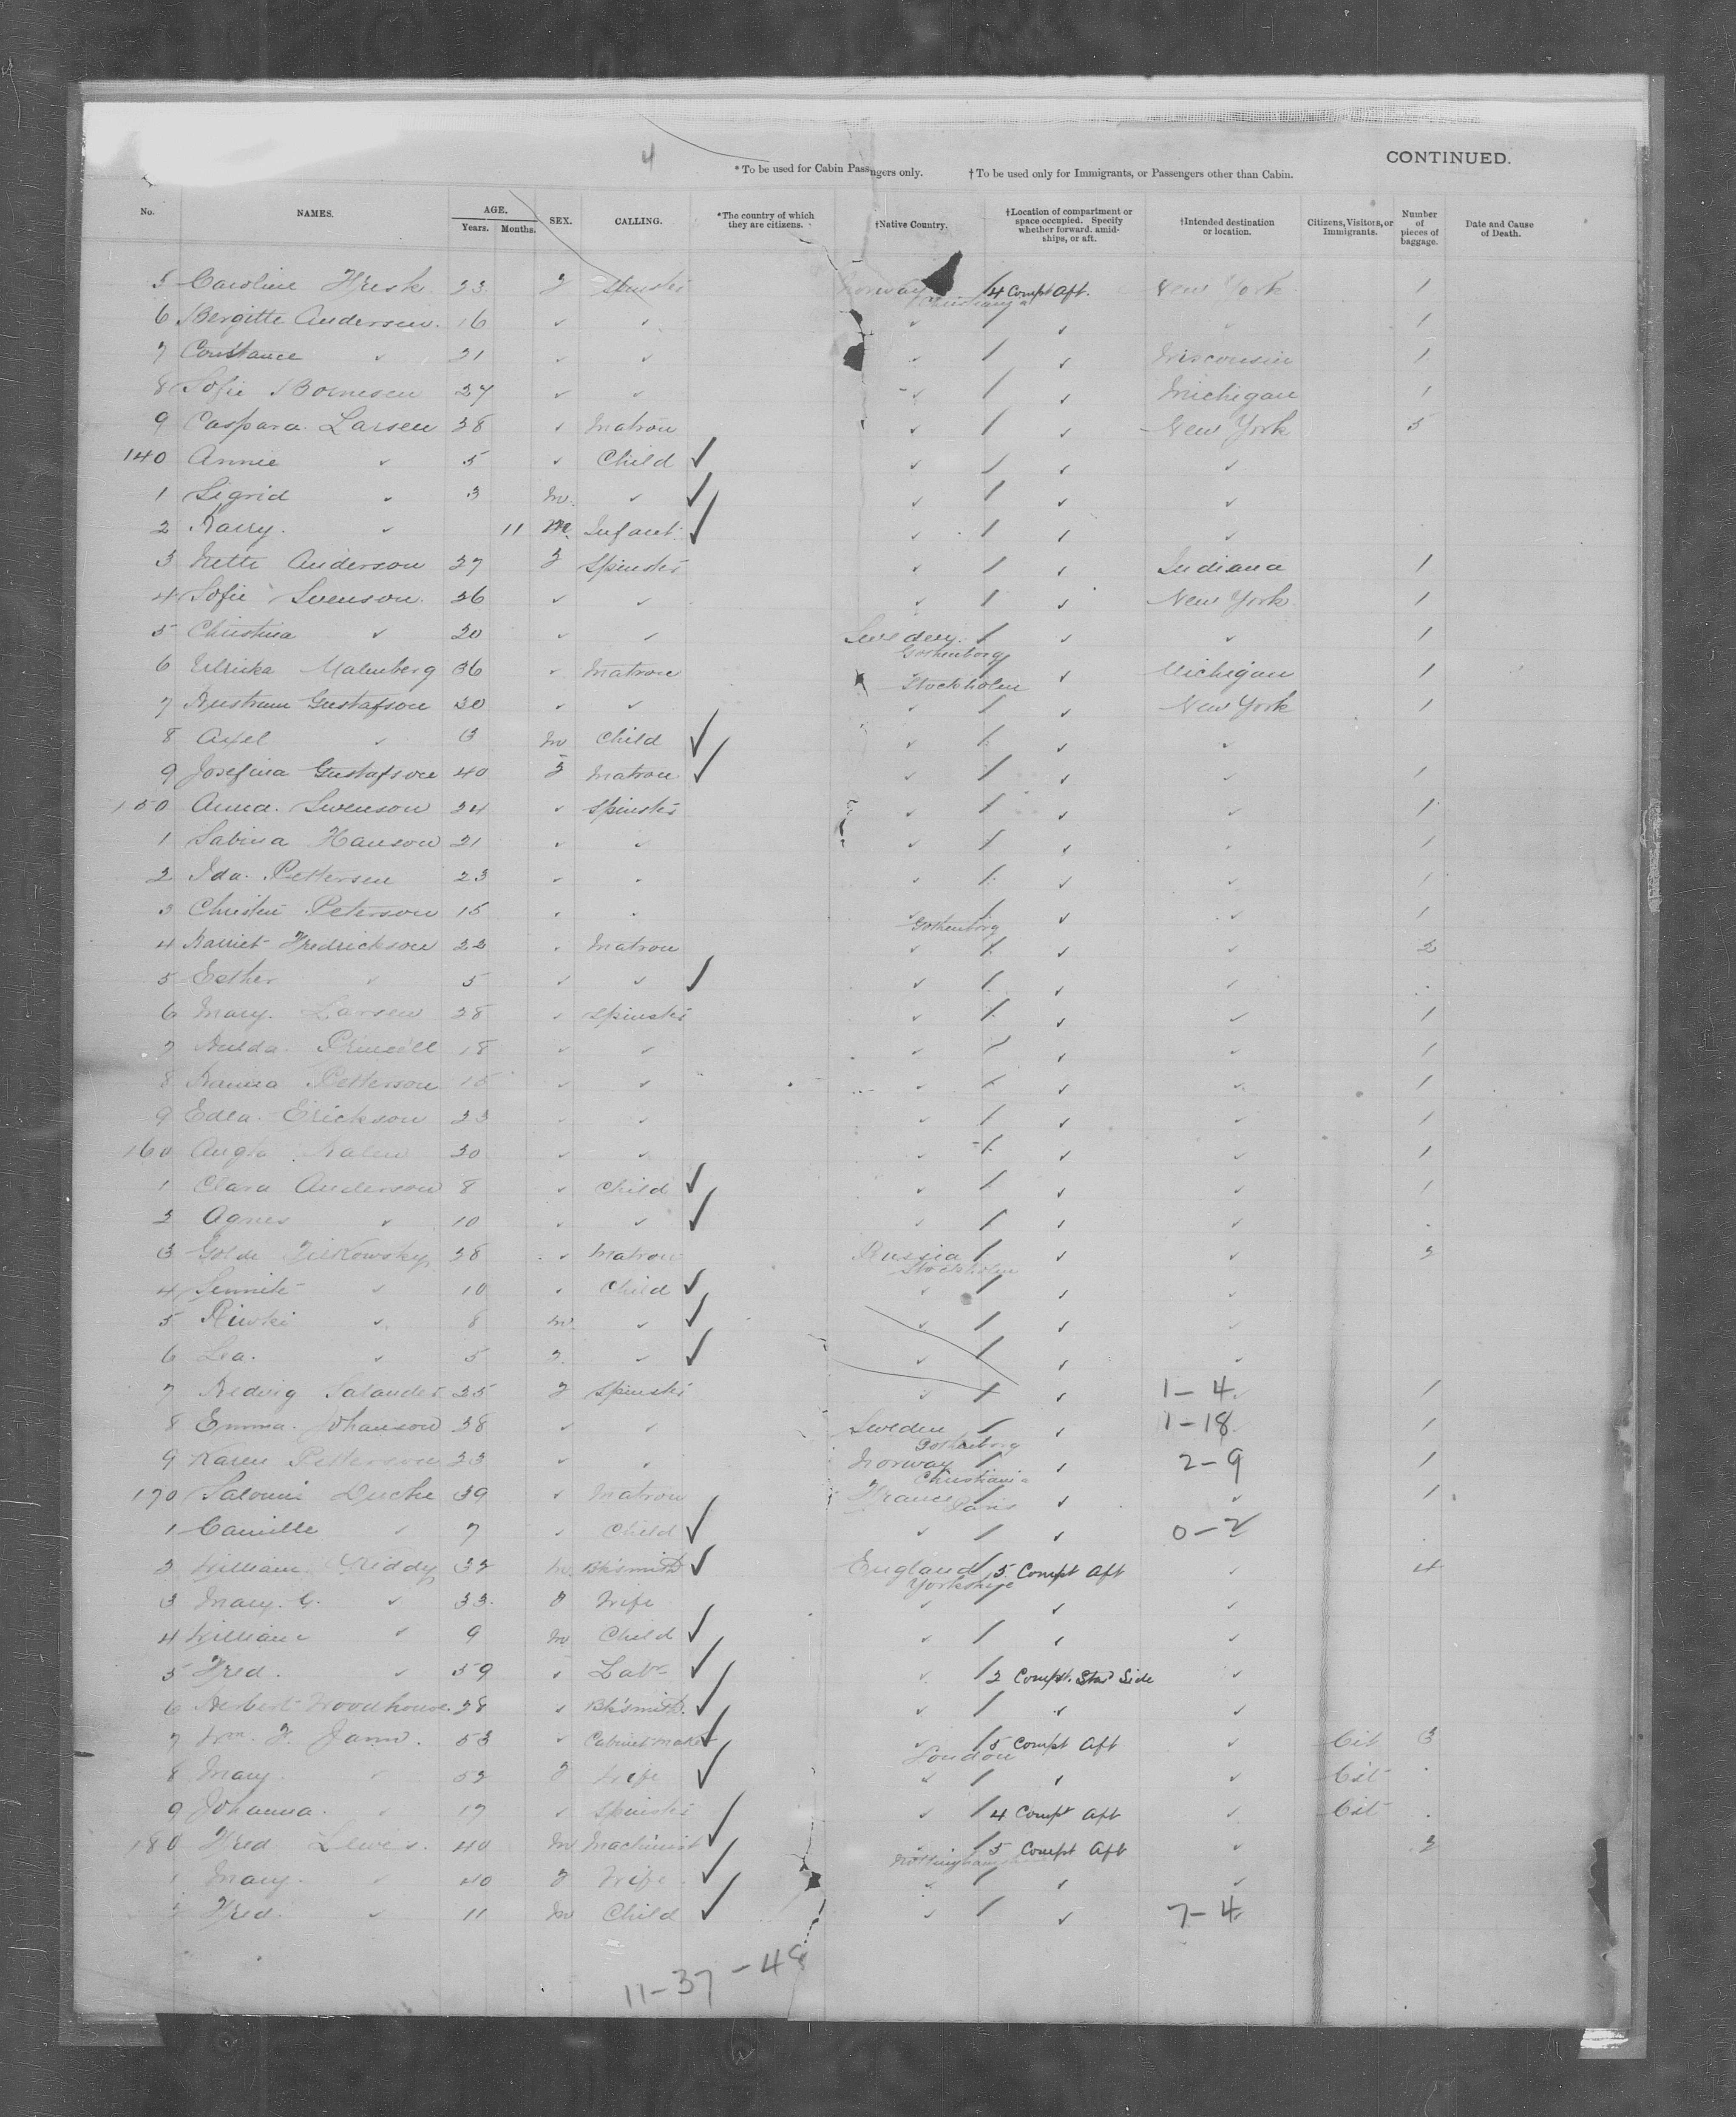 4
CONTINUED.
* To be used for Cabin Passengers only. † To be used only for Immigrants, or Passengers other than Cabin.
No. NAMES. AGE. Years. Months. SEX. CALLING. *The country of which they are citizens. †Native Country. †Location of compartment or space occupied. Specify whether forward, amidships, or aft. †Intended destination or location. Citizens, Visitors, or Immigrants. Number of pieces of baggage. Date and Cause of Death.
5 Caroline 23 F Spinster Norway Christiania 1 4 Compt Aft. New York 1
6 Bergitte Andersen. 16 ✓ ✓ ✓ 1 ✓ ✓ 1
7 Constance ✓ 21 ✓ ✓ ✓ 1 ✓ Wisconsin 1
8 Sofie 27 ✓ ✓ ✓ 1 ✓ Michigan 1
9 Caspara Larsen 28 ✓ Matron ✓ 1 ✓ New York 5
140 Annie ✓ 5 ✓ Child ✓ ✓ 1 ✓ ✓
1 Sigrid ✓ 3 M. ✓ ✓ ✓ 1 ✓ ✓
2 Harry. ✓ 11 M. Infant ✓ ✓ 1 ✓ ✓
3 Nette Anderson 27 F Spinster ✓ 1 ✓ Indiana 1
4 Sofie Svenson. 26 ✓ ✓ ✓ 1 ✓ New York 1
5 Christina ✓ 20 ✓ ✓ Sweden Gothenborg 1 ✓ ✓ 1
6 Ulricka Malmberg 36 ✓ Matron Stockholm 1 ✓ Michigan 1
7 Gustafson 30 ✓ ✓ ✓ 1 ✓ New York 1
8 Axel ✓ 3 M Child ✓ ✓ 1 ✓ ✓
9 Josefina Gustafson 40 F Matron ✓ ✓ 1 ✓ ✓ 1
150 Anna Swenson 24 ✓ Spinster ✓ 1 ✓ ✓ 1
1 Sabina Hanson 21 ✓ ✓ ✓ 1 ✓ ✓ 1
2 Ida Pettersen 23 ✓ ✓ ✓ 1 ✓ ✓ 1
3 Christin Peterson 15 ✓ ✓ ✓ Gothenborg 1 ✓ ✓ 1
4 Harriet Fredrickson 22 ✓ Matron ✓ 1 ✓ ✓ 2
5 Esther ✓ 5 ✓ ✓ ✓ ✓ 1 ✓ ✓
6 Mary. Larsen 28 ✓ Spinster ✓ 1 ✓ ✓ 1
7 Hulda 18 ✓ ✓ ✓ 1 ✓ ✓ 1
8 Hanna Petterson ✓ ✓ ✓ 1 ✓ ✓ 1
9 Edla Erickson 23 ✓ ✓ ✓ 1 ✓ ✓ 1
160 30 ✓ ✓ ✓ 1 ✓ ✓ 1
1 Clara Anderson 8 ✓ Child ✓ ✓ 1 ✓ ✓ 1
2 Agnes ✓ 10 ✓ ✓ ✓ ✓ 1 ✓ ✓
3 Golde 28 ✓ Matron Russia Stockholm 1 ✓ ✓ 2
4 ✓ 10 ✓ Child ✓ ✓ 1 ✓ ✓
5 ✓ 8 M ✓ ✓ ✓ 1 ✓ ✓
6 Lea. ✓ 5 F ✓ ✓ ✓ 1 ✓ ✓
7 Hedvig Salander 25 F Spinster ✓ 1 ✓ 1-4 1
8 Emma Johanson 28 ✓ ✓ Sweden Gothenborg 1 ✓ 1-18 1
9 Karen Petterson 23 ✓ ✓ Norway Christiania 1 ✓ 2-9 1
170 39 ✓ Matron France Paris 1 ✓ ✓ 1
1 Camille ✓ 7 ✓ Child ✓ ✓ 1 ✓ 0-2
2 William 32 M Bksmith ✓ England Yorkshire 1 5 Compt Aft ✓ 4
3 Mary. G. ✓ 33. F Wife ✓ 1 ✓ ✓
4 William ✓ 9 M Child ✓ ✓ 1 ✓ ✓
5 Fred. ✓ 59 ✓ Labr ✓ ✓ 1 2 Compt. Stard Side ✓
6 Herbert Woodhouse. 28 ✓ Bksmith. ✓ ✓ 1 ✓ ✓
7 Wm. F. 53 ✓ Cabinet maker ✓ ✓ London 1 5 Compt Aft ✓ Cit 3
8 Mary ✓ 52 F Wife ✓ ✓ 1 ✓ ✓ Cit
9 Johanna. ✓ 17 ✓ Spinster ✓ ✓ 1 4 Compt Aft ✓ Cit
180 Fred Lewes. 40 M Machinist ✓ ✓ 1 5 Compt Aft ✓ 2
1 Mary. ✓ 40 F Wife ✓ ✓ 1 ✓ ✓
2 Fred. ✓ 11 M Child ✓ ✓ 1 ✓ 7-4
11-37-48